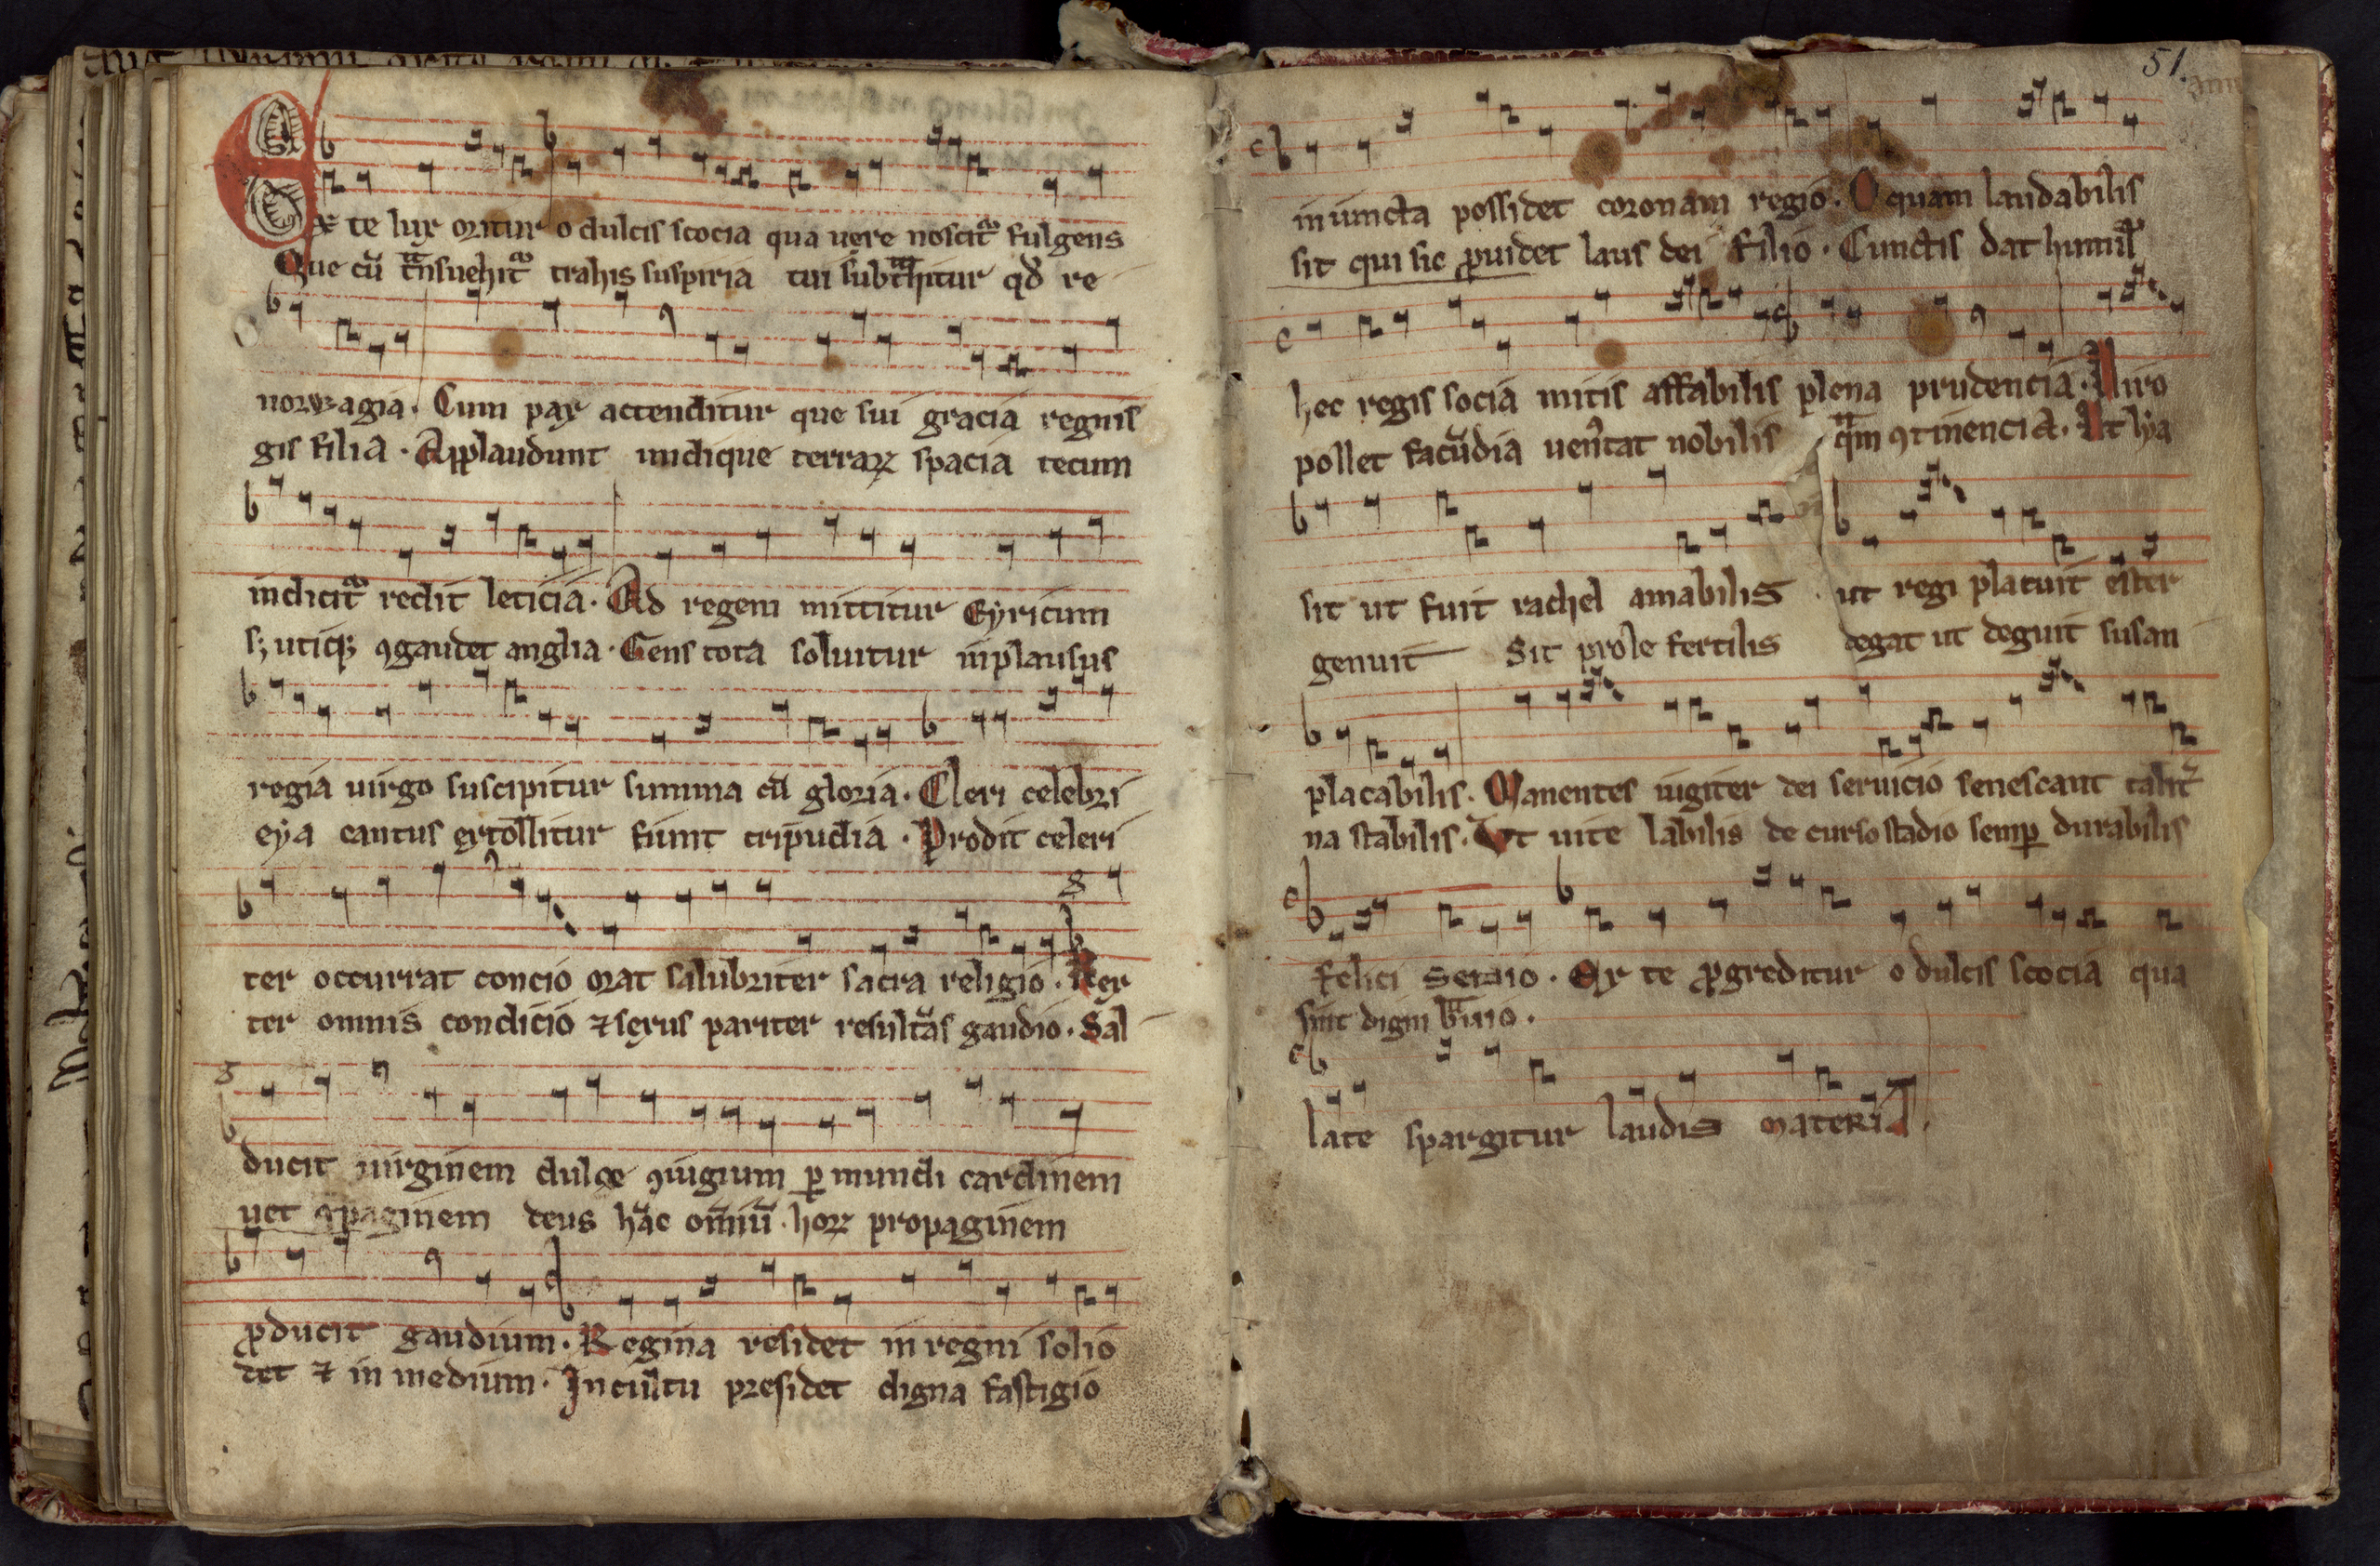 Ex te lux oritur o dulcis scocia qua uere noscitᷣ fulgens
Que cū tᷓnsuehitᷣ trahis suspiria tui subtᷓhitur qđ re
norwagia. Cum pax accenditur que sui gracia regnis
gis filia. Applaudunt undique terraꝝ spacia tecum
indicitᷣ redit leticia. Ad regem mittitur Eyricum
sꝫ utiqꝫ ꝯgaudet anglia. Gens tota soluitur in plausus
regia uirgo suscipitur summa cū gloria. Cleri celebri
eya cantus extollitur fiunt tripudia. Prodit celeri
ter occurrat concio orat salubriter sacra religio. Rex
ter omnis condicio ⁊ sexus pariter resultās gaudio. Sal
ducit uirginem dulce ꝯiugium ꝑ mundi cardinem
uet ꝯpaginem deus hāc omniū. hoꝝ propaginem
ꝓducit gaudium. Regina residet in regni solio
det ⁊ in medium. In cultu presidet digna fastigio
51.
iniuncta possidet coronam regio. O quam laudabilis
sit qui sic ꝓuidet laus dei filio. Cunctis dat humilᷣ
hec regis socia mitis affabilis plena prudencia. Uiro
pollet facūdia uen̾tat nobilis qᷓm ꝯtinencia. Ut lya
sit ut fuit rachel amabilis ut regi placuit ester
genuit Sit prole fertilis degat ut deguit susan
placabilis. Manentes iugiter dei seruicio senescant talit᷑
na stabilis. Ut uite labilis de curso stadio semꝑ durabilis
felici senio. Ex te ꝓgreditur o dulcis scocia qua
sint digni bᷓuio.
late spargitur laudis materia.